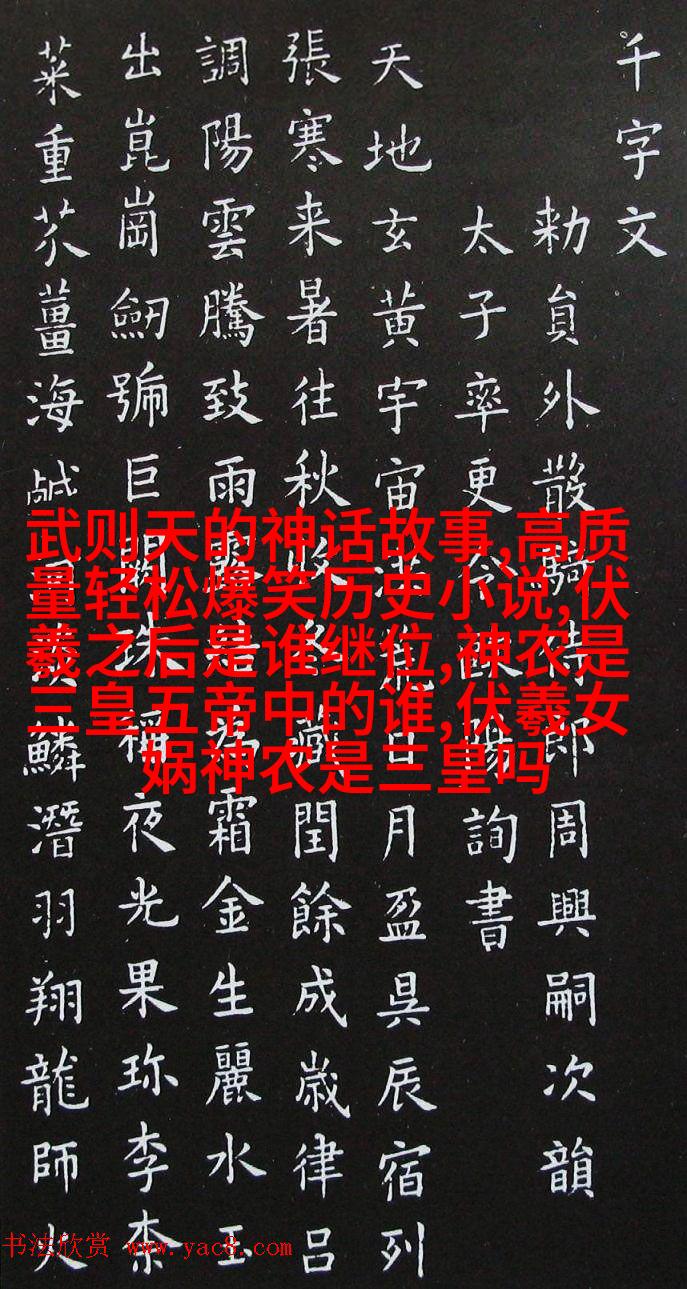 千字文
勅員外散騎侍郎周興嗣次韻
太子率更令歐陽詢書
天地玄黃宇宙洪荒日月盈昃辰宿列
張寒来暑往秋收冬藏閏餘成歲律呂
調陽雲騰致雨露結為霜金生麗水玉
出崑崗劒號巨闕珠稱夜光果珎李柰
菜重芥薑海鹹河淡鱗潛羽翔龍師火
武则天的神话故事,高质
量轻松爆笑历史小说,伏
羲之后是谁继位,神农是
三皇五帝中的谁,伏羲女
娲神农是三皇吗
书法欣赏 www.yac8.com